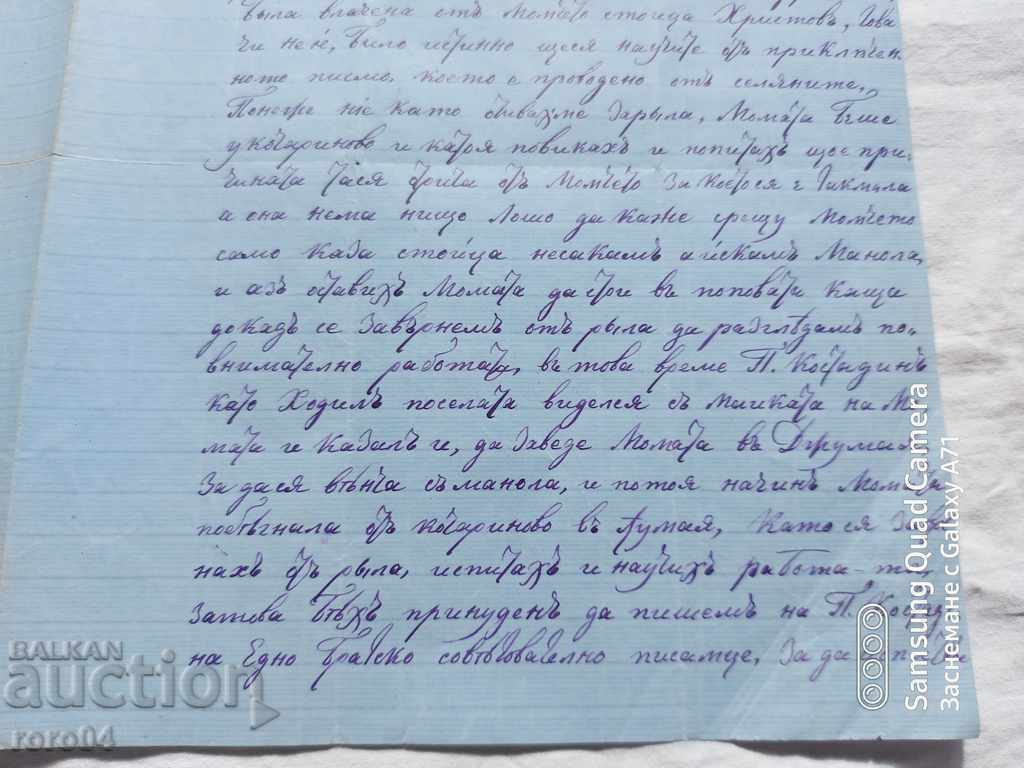 была влачена отъ момъто стоица Христовъ, това
чи не ѝ, било истинно щеся научите отъ приключен
ното писмо, което е проводено отъ селяните.
Понеже ніе като отивахме Зарыла, Момата бѣше
у кочариново и катоя повикахъ и попитахъ щое при-
чината тася отрича отъ Момчето За коетося е Гакмила
и она нема нищо Лошо да каже срещу момчето
само каза стоица несакамъ а искамъ Манола,
и азъ оставихъ Момата да стои въ поповата каща
докадъ се завърнемъ отъ рыла да разглѣдамъ по-
внимателно работата, въ това време П. Костадинъ
като Ходилъ поселата виделся съ маиката на Мо
мата и казалъ и, да заведе Момата въ Джумая
За дася вѣнча съ манола, и потоя начинъ Момата
побѣгнала отъ кочариново въ Џумая, като ся Завѣ
нахъ отъ рыла, испитахъ и научихъ работа-та,
затова бѣхъ принуденъ да пишемъ на П. Костад
на Едно братско совѣтователно писамце, За да
BALKAN
auction
roro04
Samsung Quad Camera
Заснемане с Galaxy A71